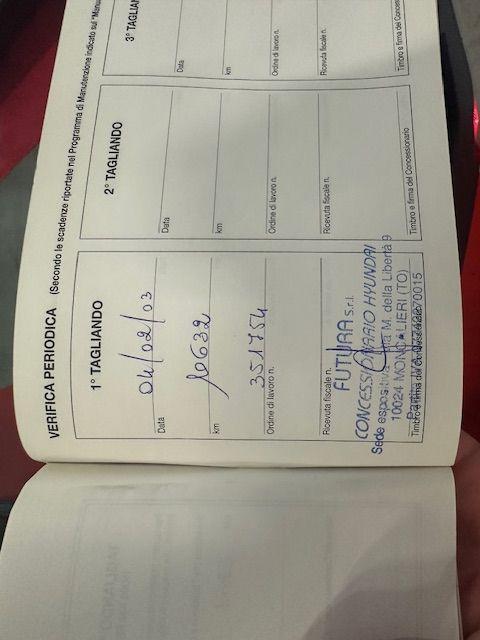 VERIFICA PERIODICA (Secondo le scadenze riportate nel Programma di Manutenzione indicato sul "Manu
1° TAGLIANDO
04/02/03
Data
10632
km
351754
Ordine di lavoro n.
Ricevuta fiscale n.
FUTURA S.r.l.
CONCESSIONARIO HYUNDAI
Sede espositiva: M. della Libertà 9
10024 MONCALIERI (TO)
Timbro e firma del Concessionario
2° TAGLIANDO
Data
km
Ordine di lavoro n.
Ricevuta fiscale n.
Timbro e firma del Concessionario
3° TAGLIAN
Data
km
Ordine di lavoro n.
Ricevuta fiscale n.
Timbro e firma del Concessio